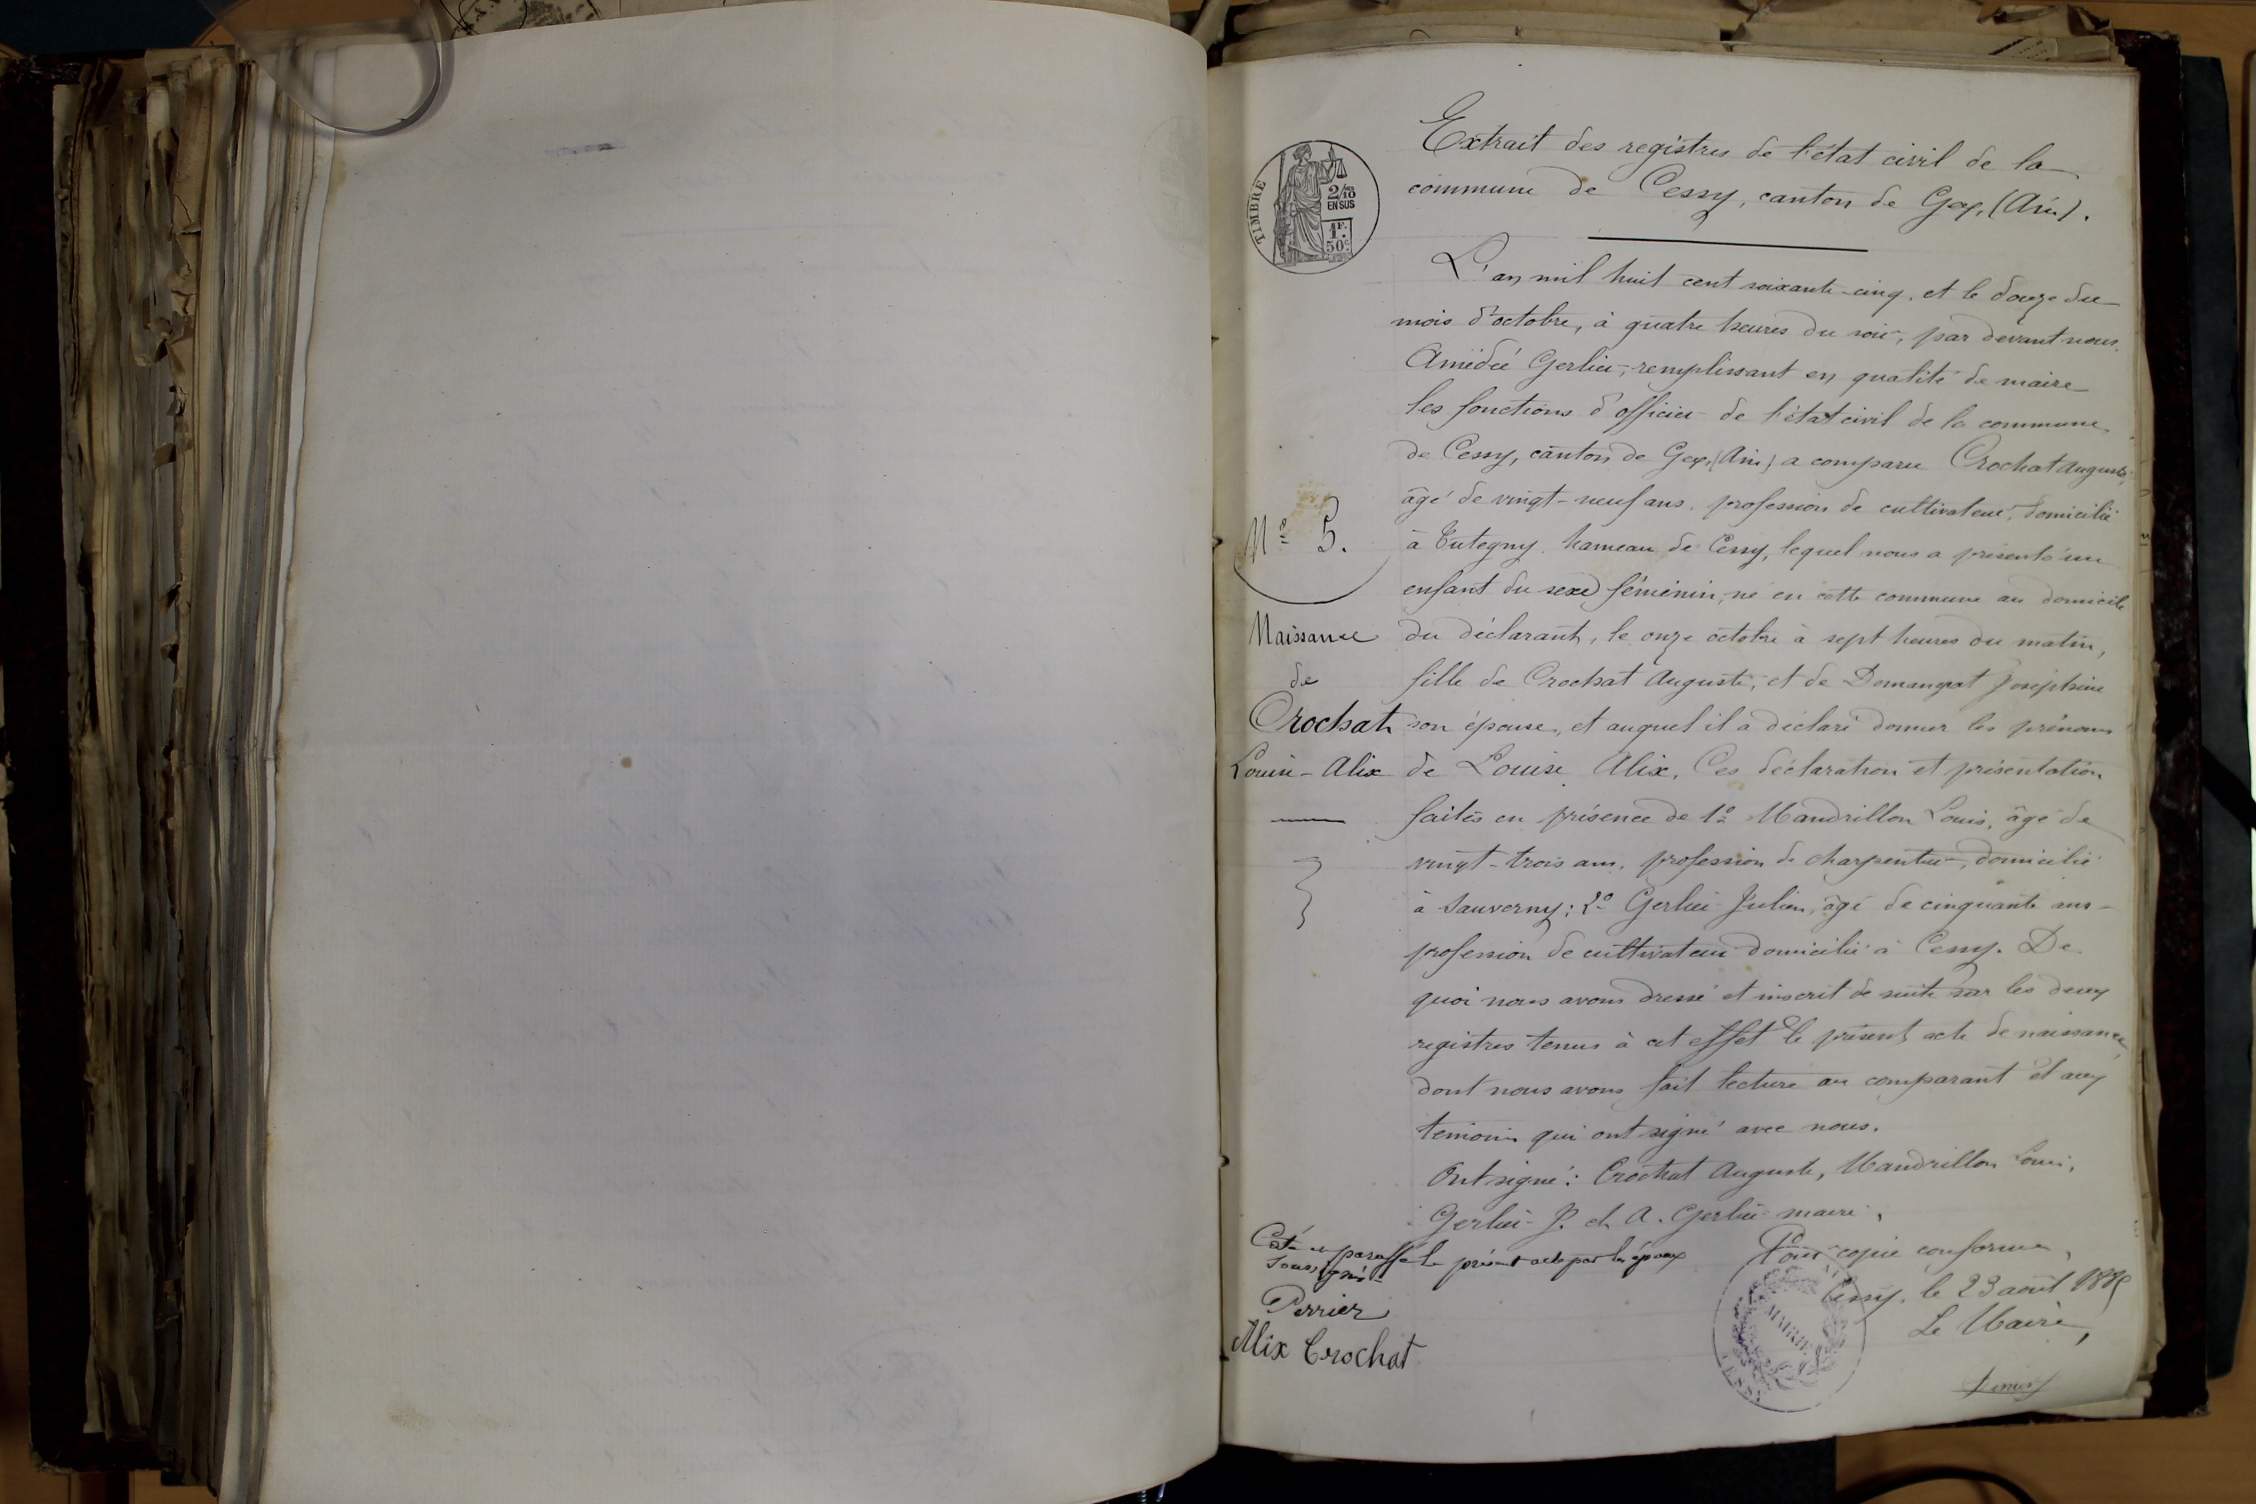 Extrait des registres de l'état civil de la
commune de Cessy, canton de Gex, (Ain).
TIMBRE
2/10
EN SUS
1F.
50c.
L'an mil huit cent soixante-cinq, et le douze du
mois d'octobre, à quatre heures du soir, par devant nous,
Amédée Gerlier, remplissant en qualité de maire
les fonctions d'officier de l'état civil de la commune
de Cessy, canton de Gex, (Ain) a comparu Crochat Auguste,
âgé de vingt-neuf ans, profession de cultivateur, domicilié
Nº 5.
à Tutegny, hameau de Cessy, lequel nous a présenté un
enfant du sexe féminin, né en cette commune au domicile
Naissance
du déclarant, le onze octobre à sept heures du matin,
de
fille de Crochat Auguste, et de Domangeat Joséphine
Crochat
son épouse, et auquel il a déclaré donner les prénoms
Louise-Alix
de Louise Alix. Ces déclaration et présentation
faites en présence de 1º Mandrillon Louis, âgé de
vingt-trois ans, profession de charpentier, domicilié
à Sauverny; 2º Gerlier Julien, âgé de cinquante ans
profession de cultivateur domicilié à Cessy. De
quoi nous avons dressé et inscrit de suite sur les deux
registres tenus à cet effet le présent acte de naissance,
dont nous avons fait lecture au comparant et aux
témoins qui ont signé avec nous.
Ont signé: Crochat Auguste, Mandrillon Louis,
Gerlier J. et A. Gerlier maire.
Coté et paraffé le présent acte par les époux
soussignés
Perrier
Alix Crochat
Pour copie conforme,
Cessy, le 23 août 1885
Le Maire,
MAIRIE
CESSY